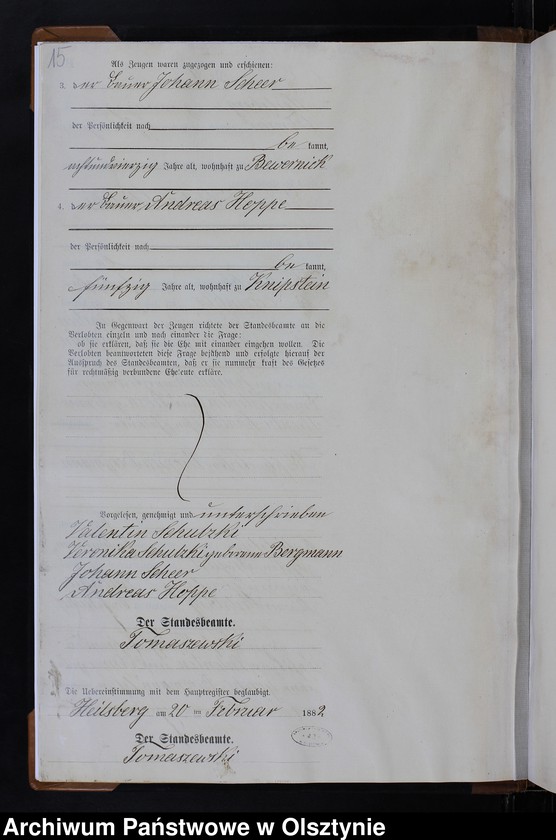 15
Als Zeugen waren zugezogen und erschienen:
3. der Bauer Johann Scheer
der Persönlichkeit nach
be kannt,
achtundvierzig Jahre alt, wohnhaft zu Bewernick
4. der Bauer Andreas Hoppe
der Persönlichkeit nach
be kannt,
fünfzig Jahre alt, wohnhaft zu Knipstein
In Gegenwart der Zeugen richtete der Standesbeamte an die
Verlobten einzeln und nach einander die Frage:
ob sie erklären, daß sie die Ehe mit einander eingehen wollen. Die
Verlobten beantworteten diese Frage bejahend und erfolgte hierauf der
Ausspruch des Standesbeamten, daß er sie nunmehr kraft des Gesetzes
für rechtmäßig verbundene Eheleute erkläre.
Vorgelesen, genehmigt und unterschrieben
Valentin Schulzki
Veronika Schulzki geborene Bergmann
Johann Scheer
Andreas Hoppe
Der Standesbeamte.
Tomaszewski
Die Uebereinstimmung mit dem Hauptregister beglaubigt
Heilsberg am 20 ten Februar 1882
Der Standesbeamte.
Tomaszewski
Archiwum Państwowe w Olsztynie